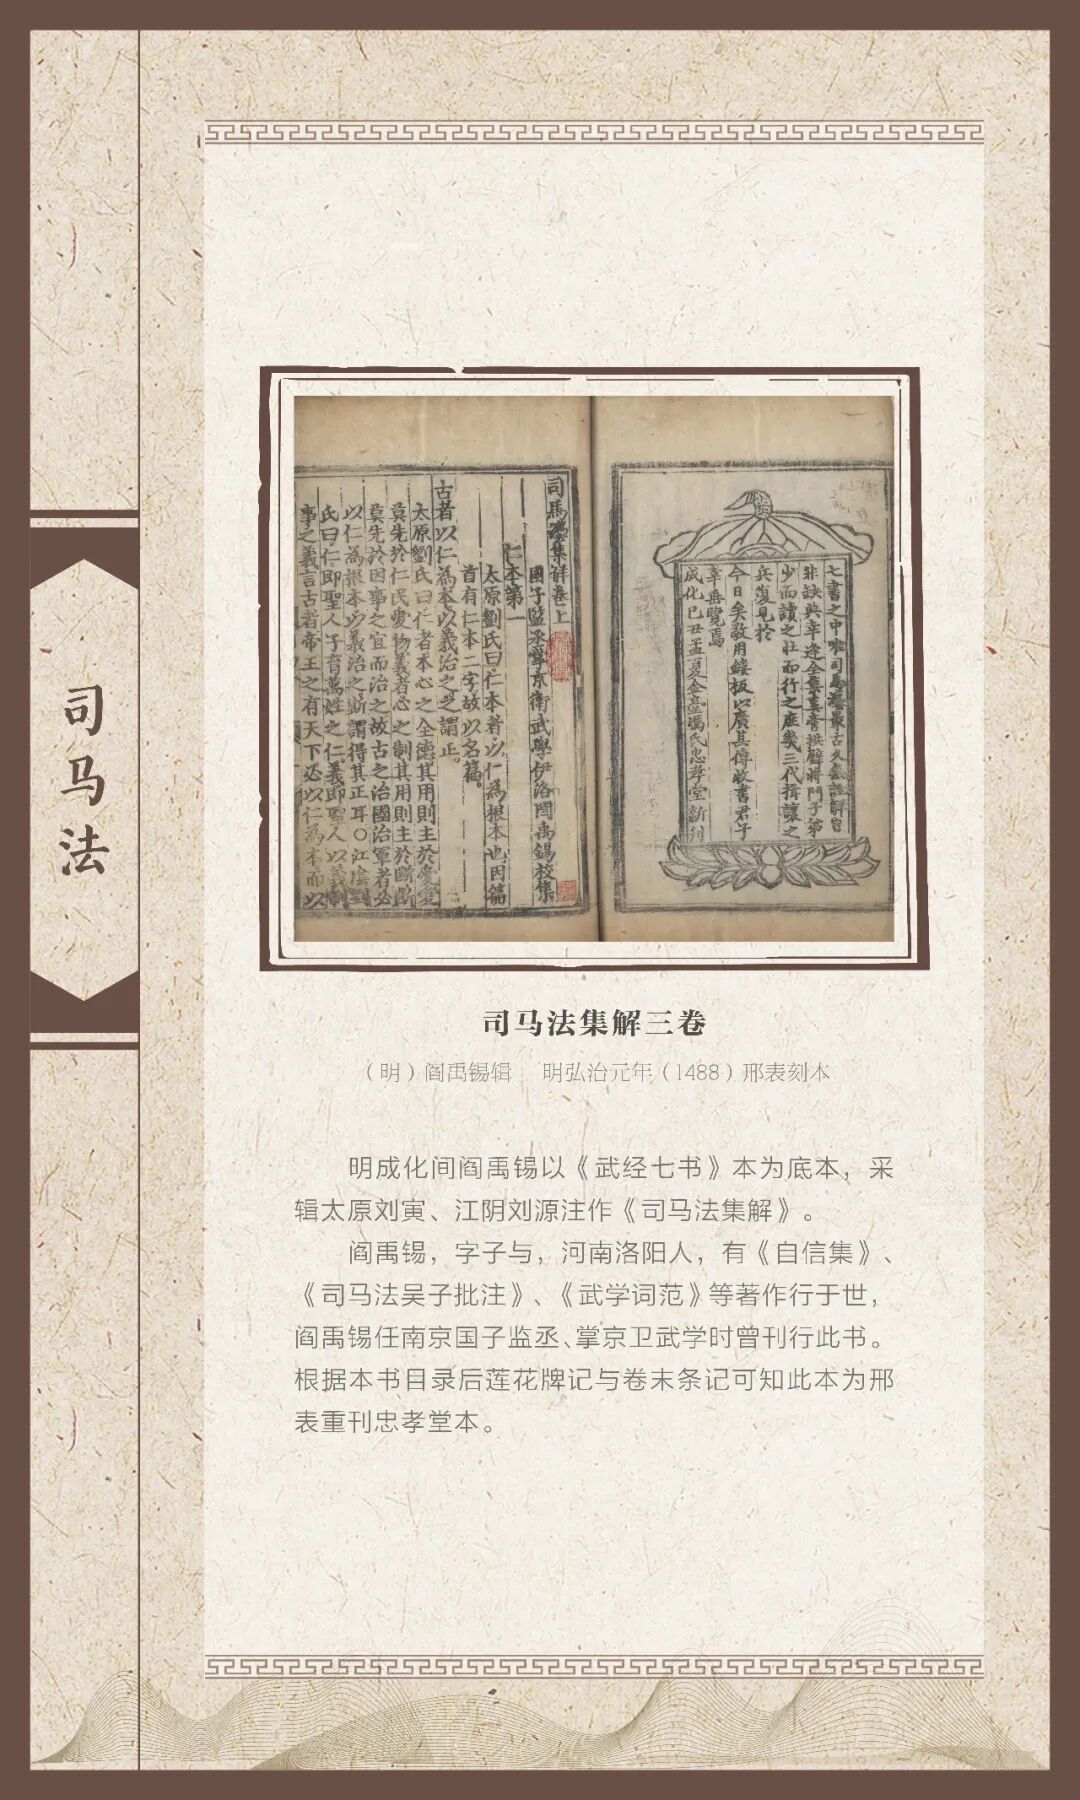 司马法
七書之中唯司馬法最古久無註解旨
非缺與幸逢全集真膏拱璧將門子弟
少而讀之壯而行之庶幾三代揖讓之
兵復見於
今日矣敬用鏤板以廣其傳收書君子
幸垂覽焉
成化己丑孟夏金臺馮氏忠孝堂新刊
司馬法集解卷上
國子監丞掌京衛武學伊洛閻禹錫校集
仁本第一
太原劉氏曰仁本者以仁為根本也因篇
首有仁本二字故以名篇
古者以仁為本以義治之之謂正
太原劉氏曰仁者本心之全德其用則主於愛愛
莫先於仁民愛物義者心之制其用則主於斷斷
莫先於因事之宜而治之故古之治國治軍者必
以仁為根本以義治之斯謂得其正耳○江陰劉
氏曰仁即聖人子育萬姓之仁義即聖人以義制
事之義言古者帝王之有天下必以仁為本而以
司马法集解三卷
（明）阎禹锡辑　明弘治元年（1488）邢表刻本
明成化间阎禹锡以《武经七书》本为底本，采
辑太原刘寅、江阴刘源注作《司马法集解》。
阎禹锡，字子与，河南洛阳人，有《自信集》、
《司马法吴子批注》、《武学词范》等著作行于世，
阎禹锡任南京国子监丞、掌京卫武学时曾刊行此书。
根据本书目录后莲花牌记与卷末条记可知此本为邢
表重刊忠孝堂本。